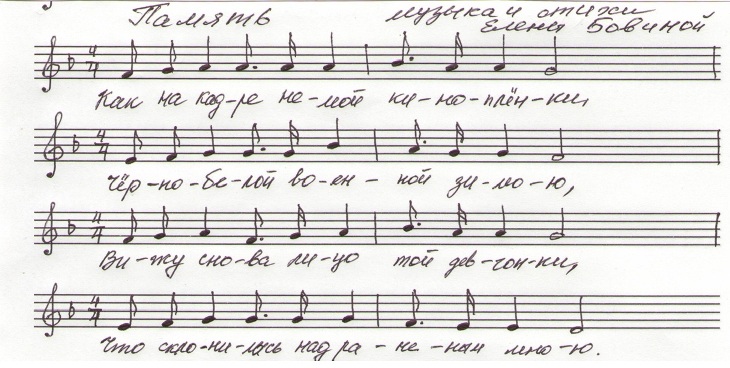 Память
музыка и стихи
Елены Бовиной
4/4
Как на кад-ре не-мой ки-но-плён-ки,
4/4
Чёр-но-бе-лой во-ен-ной зи-мо-ю,
4/4
Ви-жу сно-ва ли-цо той дев-чон-ки,
4/4
Что скло-ни-лась над ра-не-ным мно-ю.